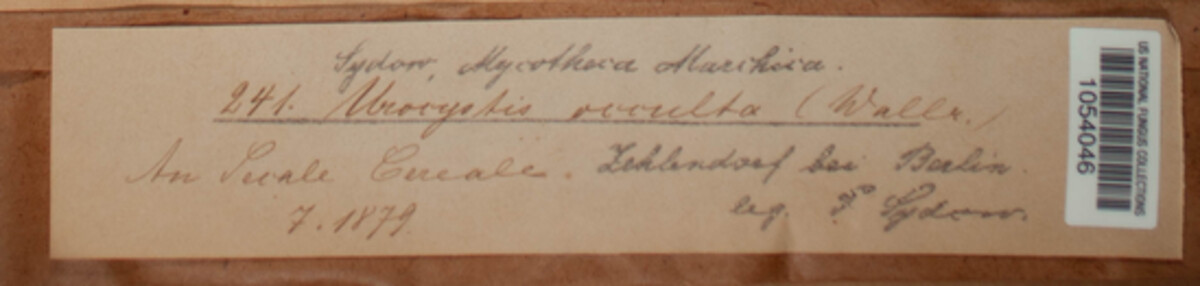 Sydow, Mycotheca Marchica.
241. Urocystis occulta (Wallr.)
An Secale Cereale. Zehlendorf bei Berlin.
7. 1879. leg. P. Sydow.
US NATIONAL FUNGUS COLLECTIONS
1054046